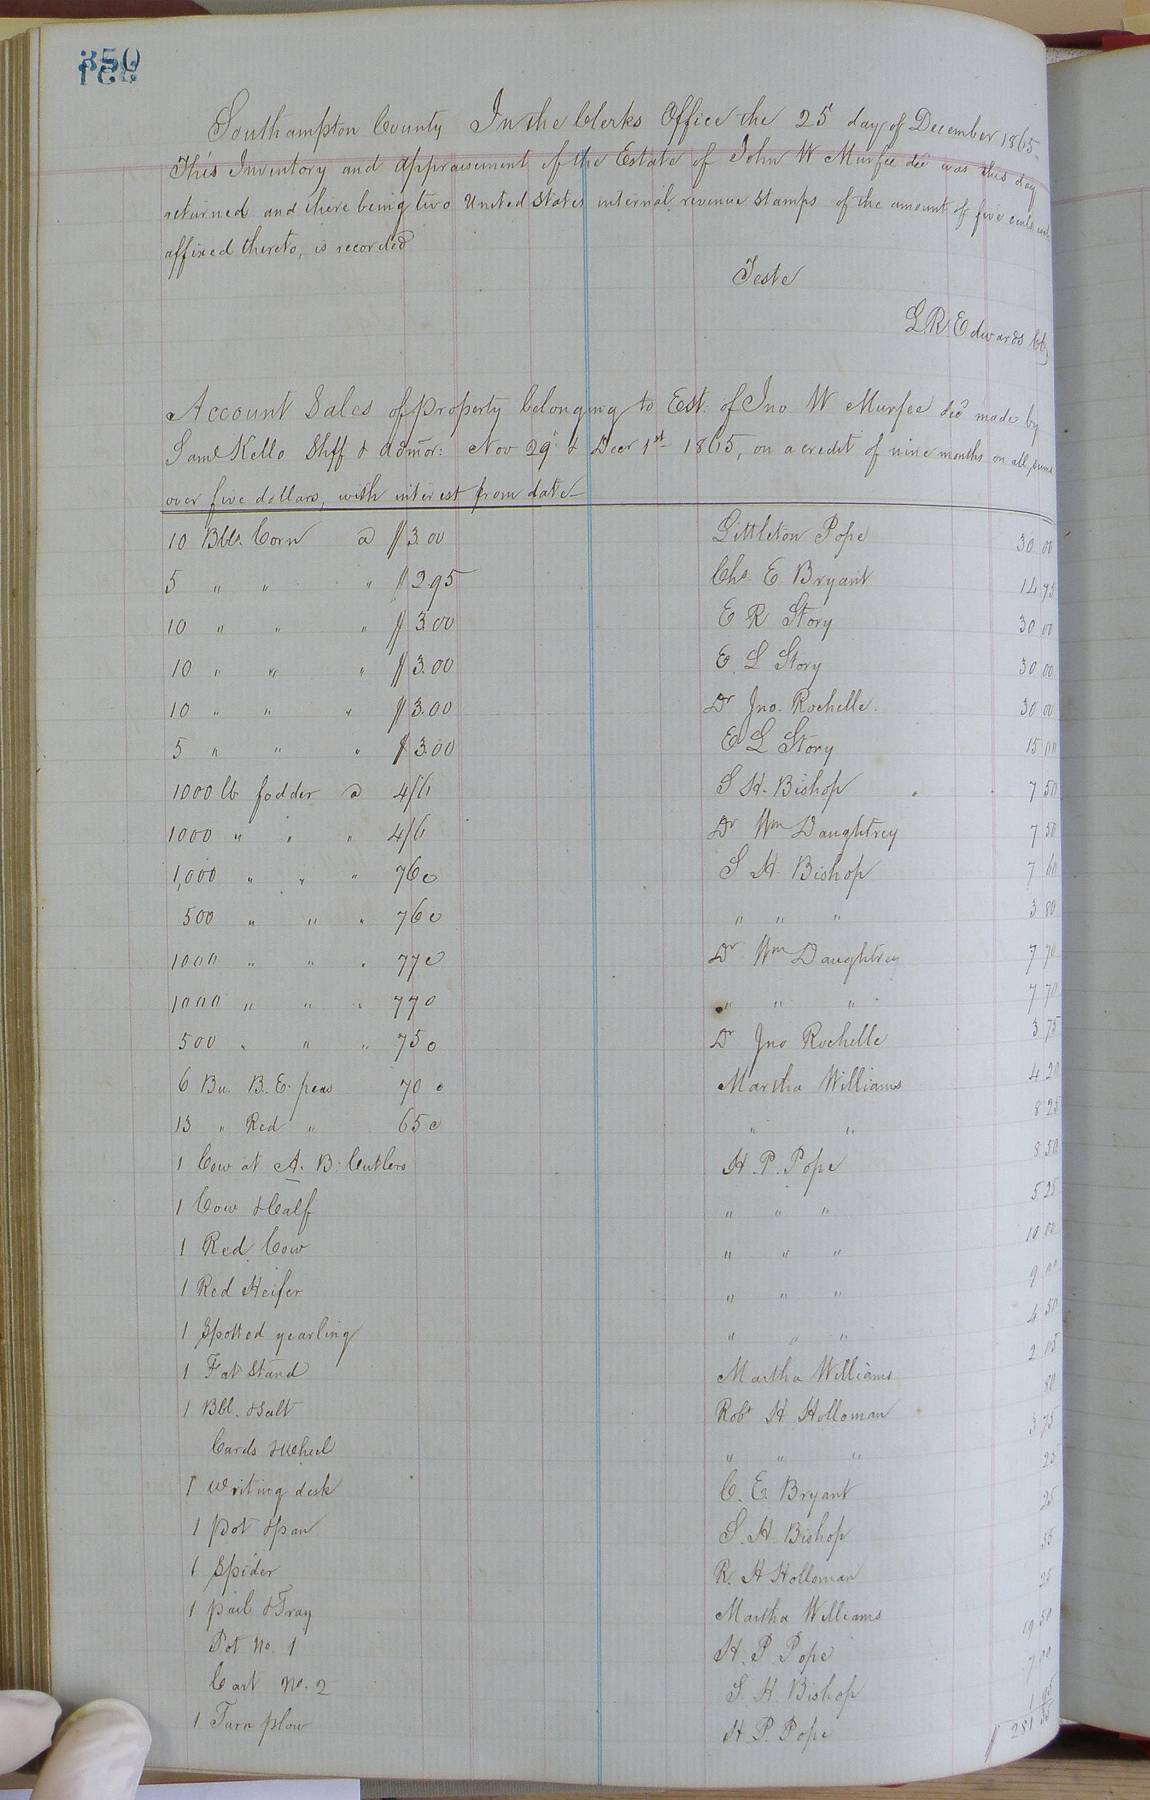 350
Southampton County In the Clerks Office the 25 day of December 1865.
This Inventory and appraisement of the Estate of John W Murfee decd was this day
returned and there being two United States internal revenue stamps of the amount of five cents each
affixed thereto, is recorded
Teste
L R Edwards
Account Sales of property belonging to Est. of Jno W Murfee decd made by
Saml Kello Shff & admor: Nov 29th & Decr 1st 1865, on a credit of nine months on all sums
over five dollars, with interest from date
10 Bbls. Corn @ $3.00 Littleton Pope 30 00
5 " " " $2.95 Chs. E Bryant 14 75
10 " " " $3.00 E R Story 30 00
10 " " " $3.00 E. L Story 30 00
10 " " " $3.00 Dr Jno. Rochelle. 30 00
5 " " " $3.00 E L Story 15 00
1000 lb fodder @ 4/6 S H. Bishop 7 50
1000 " " " 4/6 Dr Wm Daughtrey 7 50
1,000 " " " 76c S H. Bishop 7 60
500 " " " 76c " " " 3 80
1000 " " " 77c Dr Wm Daughtrey 7 70
1000 " " " 77c " " " 7 70
500 " " " 75c Dr Jno Rochelle 3 75
6 Bu. B. E. peas 70 c Martha Williams 4 20
13 " Red " 65c " " 8 25
1 Cow at A. B. Cutlers H. P. Pope 8 50
1 Cow & Calf " " " 5 25
1 Red Cow " " " 10 00
1 Red Heifer " " " 9 00
1 Spotted yearling " " " 4 50
1 Fat Stand Martha Williams 2 05
1 Bbl. & Salt Robt H Holloman 80
Cards & Wheel " " " 3 75
1 writing desk C. E. Bryant 25
1 pot & pan S. H. Bishop 25
1 Spider R. H Holloman 55
1 pail & Tray Martha Williams 25
Pot No. 1 H. P. Pope 19 50
Cart No. 2 S. H. Bishop 7 00
1 Turn plow H. P. Pope 1
$ 281 35